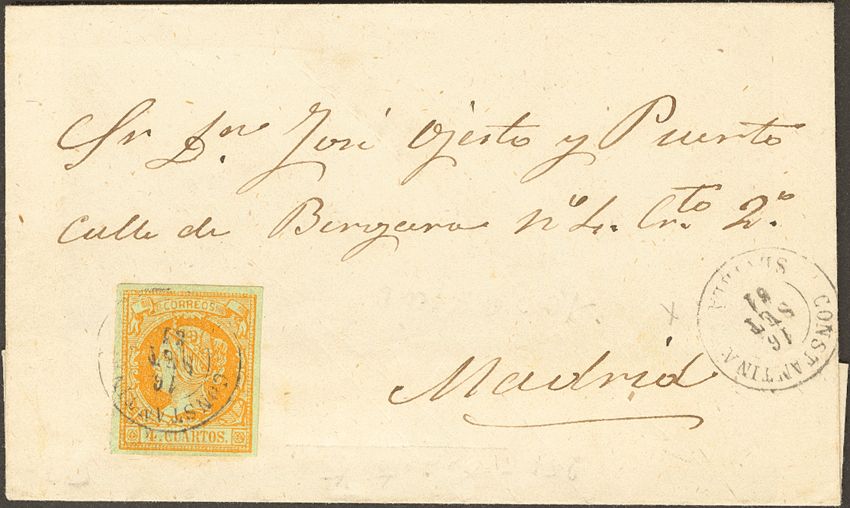 Sr Dn José Ojesto y Puerto
Calle de Bergara nº 4. Crto 2º
Madrid
CORREOS
4 CUARTOS.
CONSTANTINA
16
CONSTANTINA
SEVILLA
16
SET
61